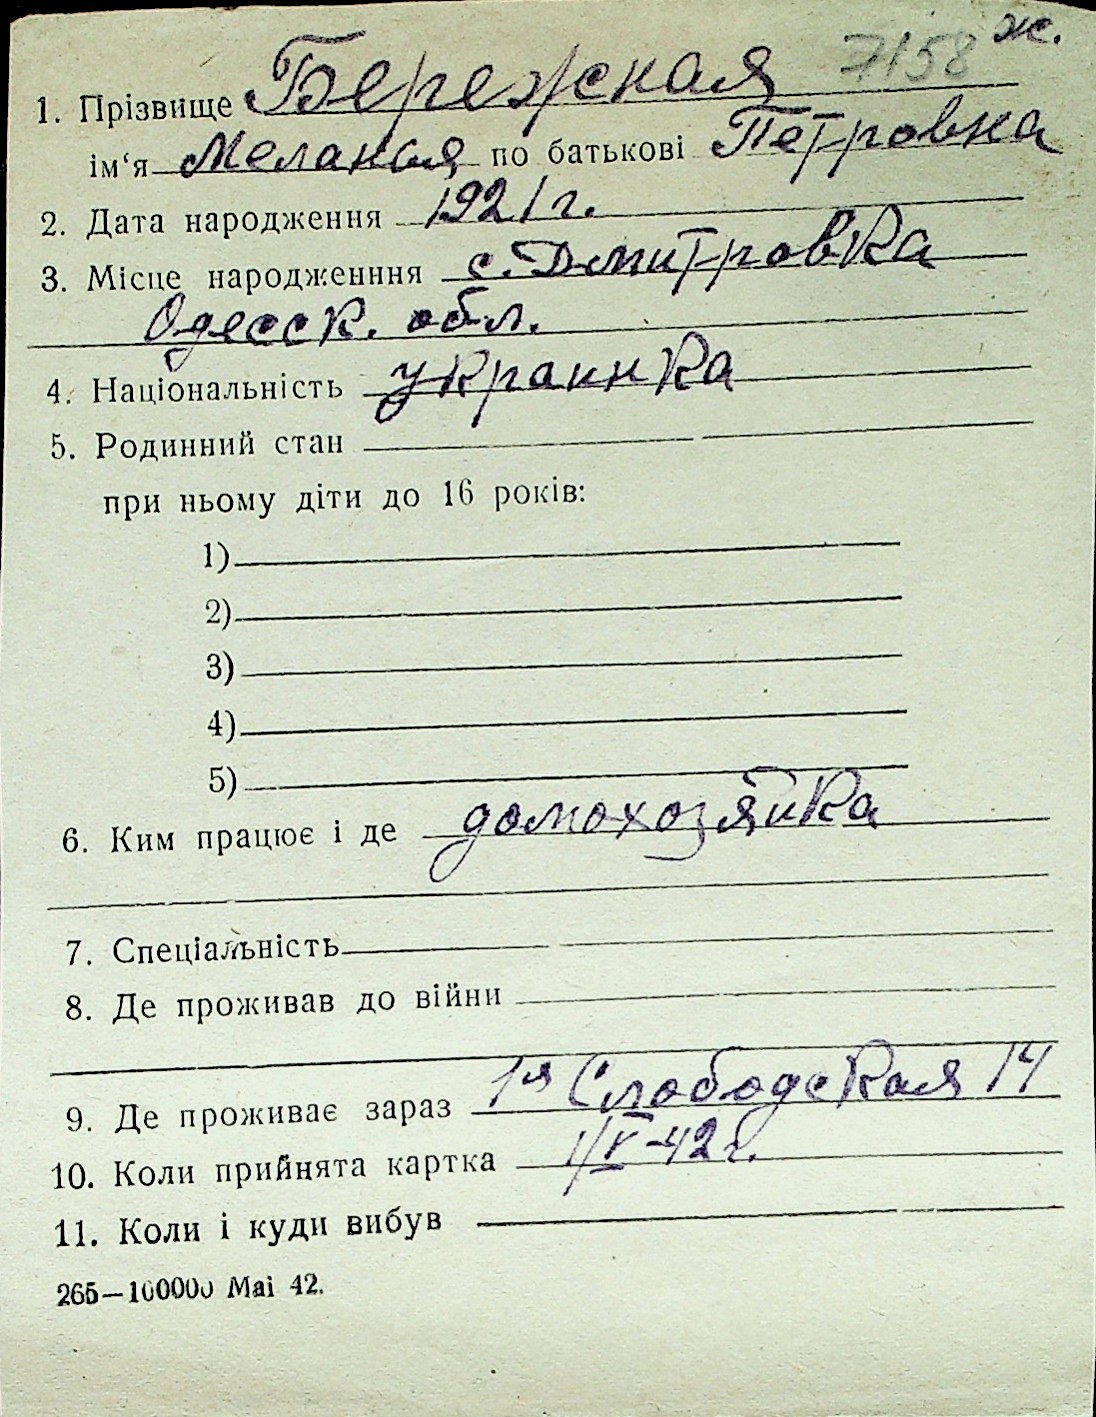 7158 ж.
1. Прізвище Бережная
ім‘я Мелания по батькові Петровна
2. Дата народження 1921 г.
3. Місце народженння с. Дмитровка
Одесск. обл.
4. Національність украинка
5. Родинний стан
при ньому діти до 16 років:
1)
2)
3)
4)
5)
6. Ким працює і де домохозяйка
7. Спеціальність
8. Де проживав до війни
9. Де проживає зараз 1я Слободская 14
10. Коли прийнята картка 1/V-42 г.
11. Коли і куди вибув
265—100000 Mai 42.